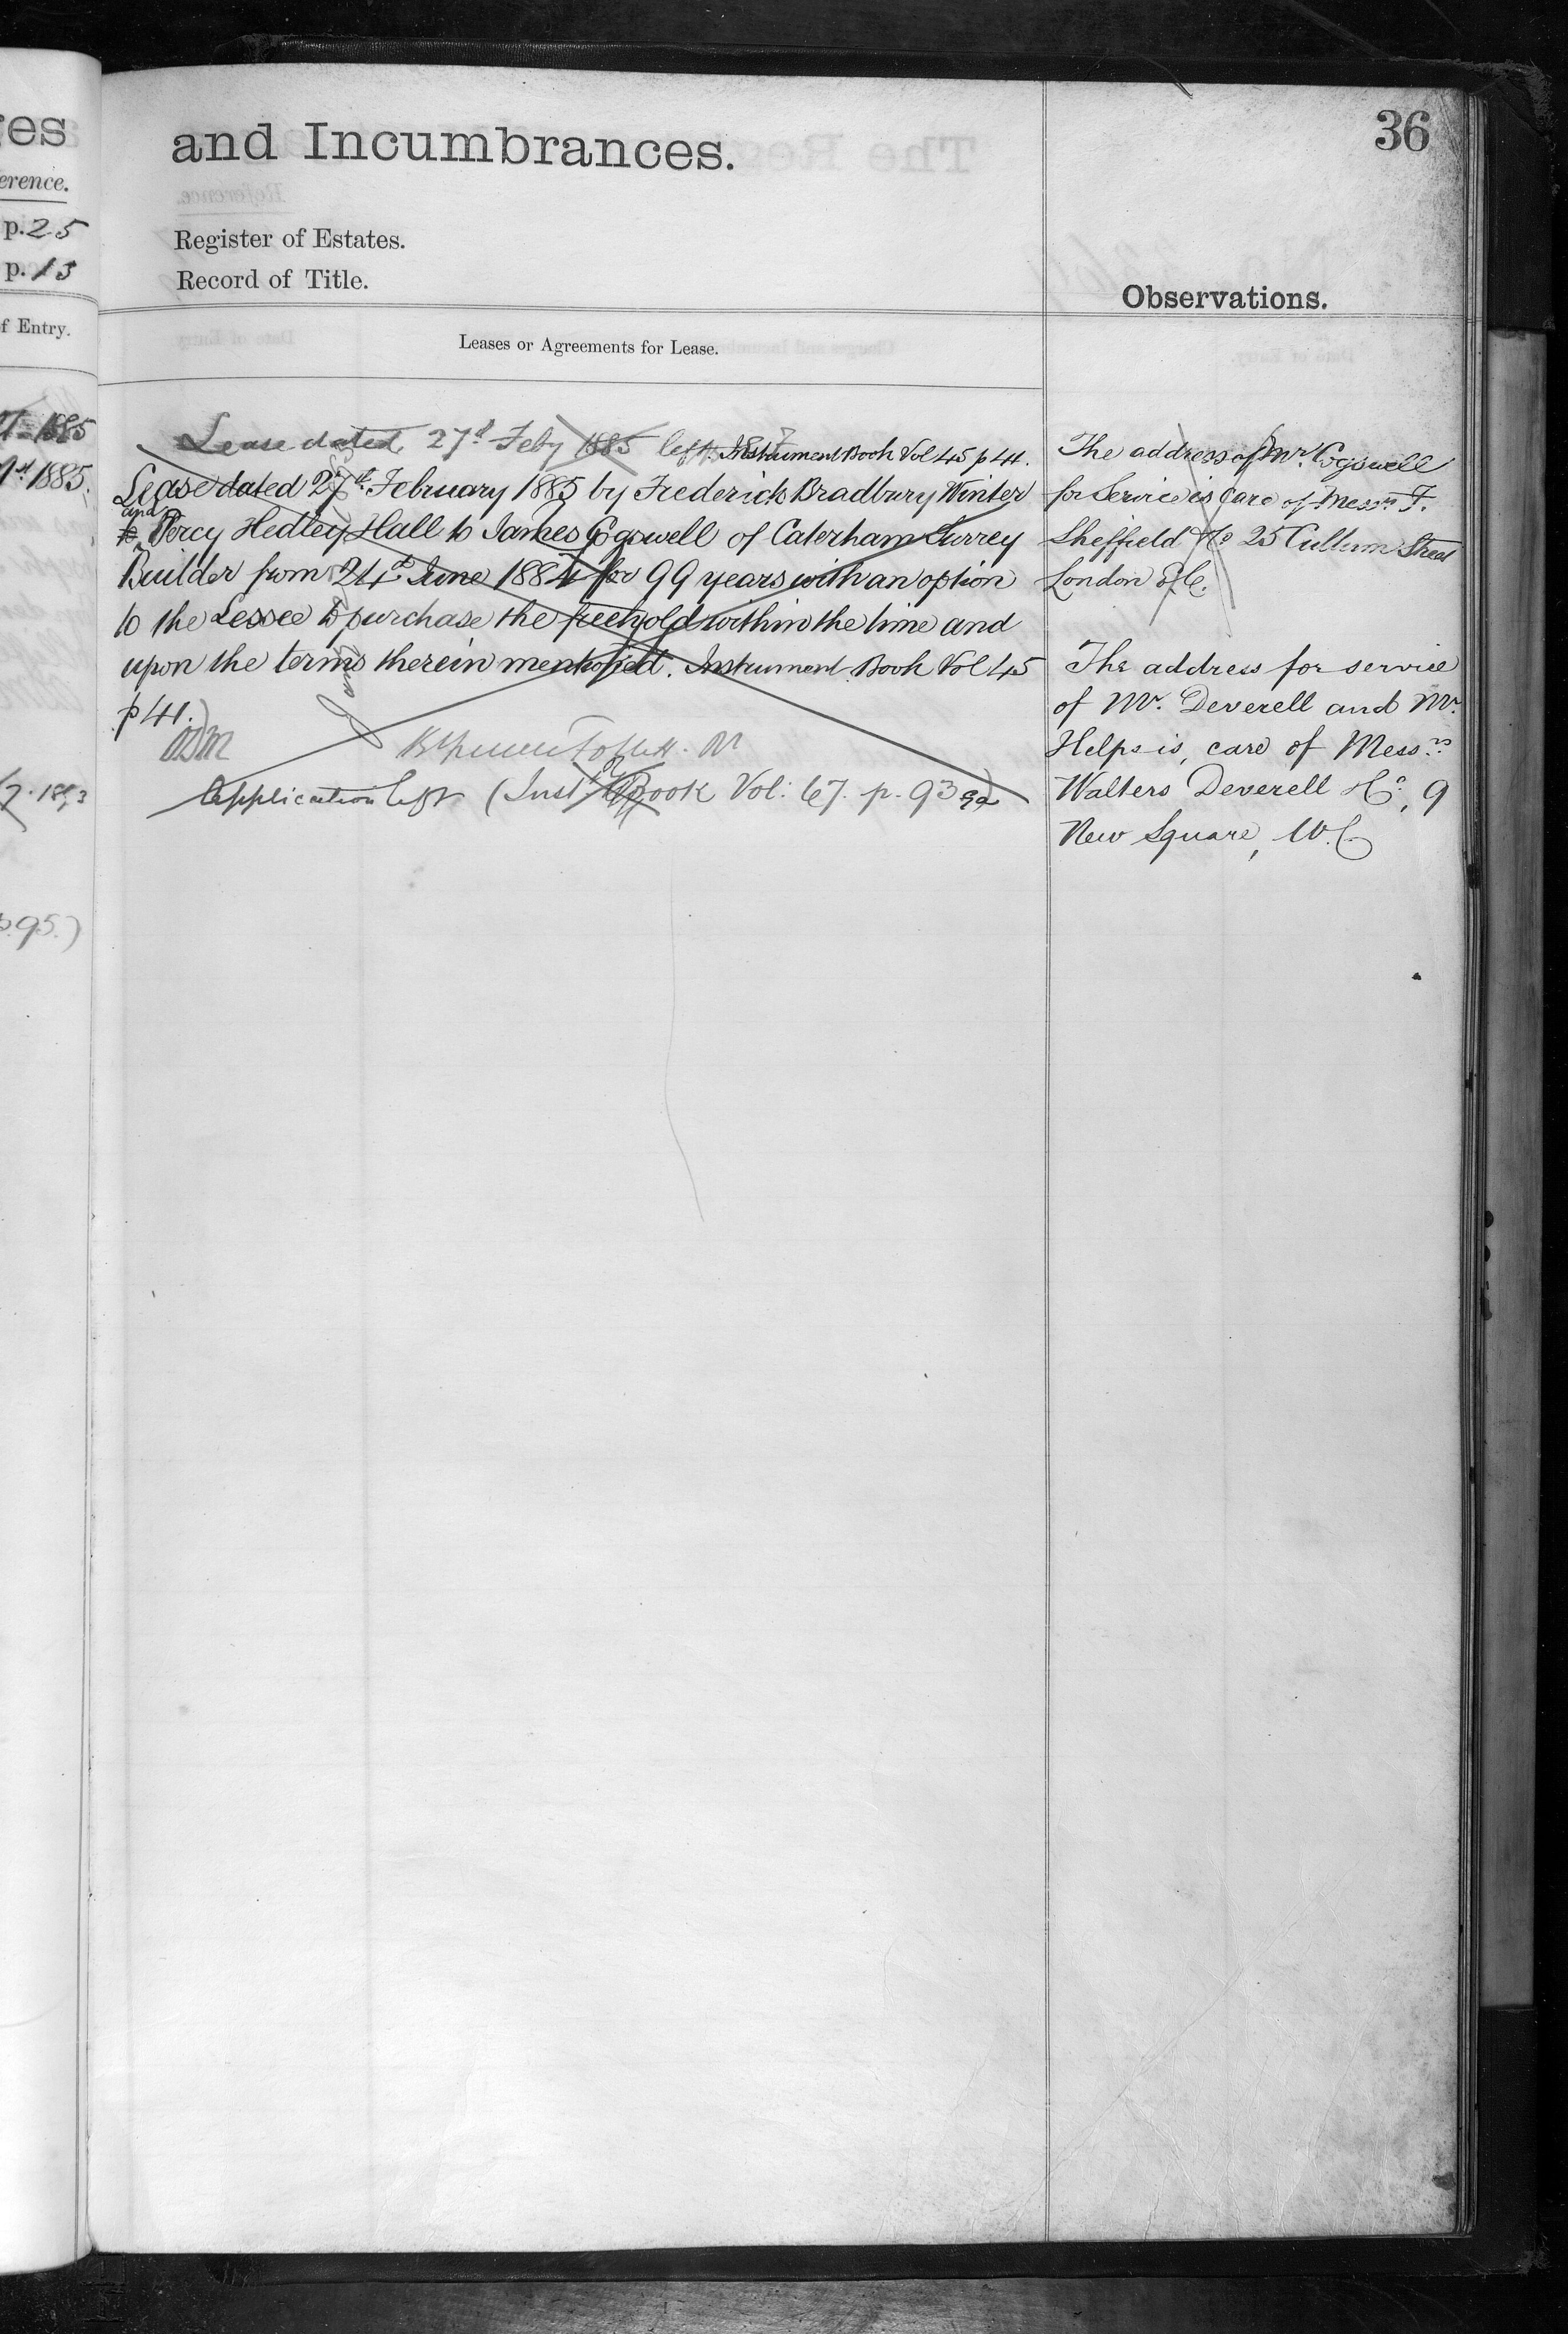 ges
erence.
p. 25
p. 13
f Entry.
1885
1885.
7. 1893
p. 95.)
36
and Incumbrances.
Register of Estates.
Record of Title.
Observations.
Leases or Agreements for Lease.
Lease dated 27th Feby 1885 left. Instrument Book Vol 45 p 41.
Lease dated 27th February 1885 by Frederick Bradbury Winter
and
to Percy Hedley Hall to James Cogswell of Caterham Surrey
Builder from 24th June 1884 for 99 years with an option
to the Lessee to purchase the freehold within the time and
upon the terms therein mentioned. Instrument Book Vol 45
p 41.)
Application left (Inst Book Vol: 67. p. 93
The address of Mr. Cogswell
for Service is care of Messrs F.
Sheffield & Co 25 Cullum Street
London E.C.
The address for service
of Mr. Deverell and Mr.
Helps is, care of Messrs
Walters Deverell & Co, 9
New Square, W.C.